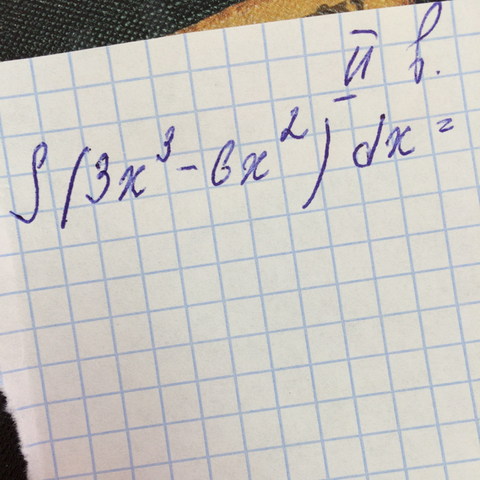 II в.
∫(3x³ - 6x²) dx =